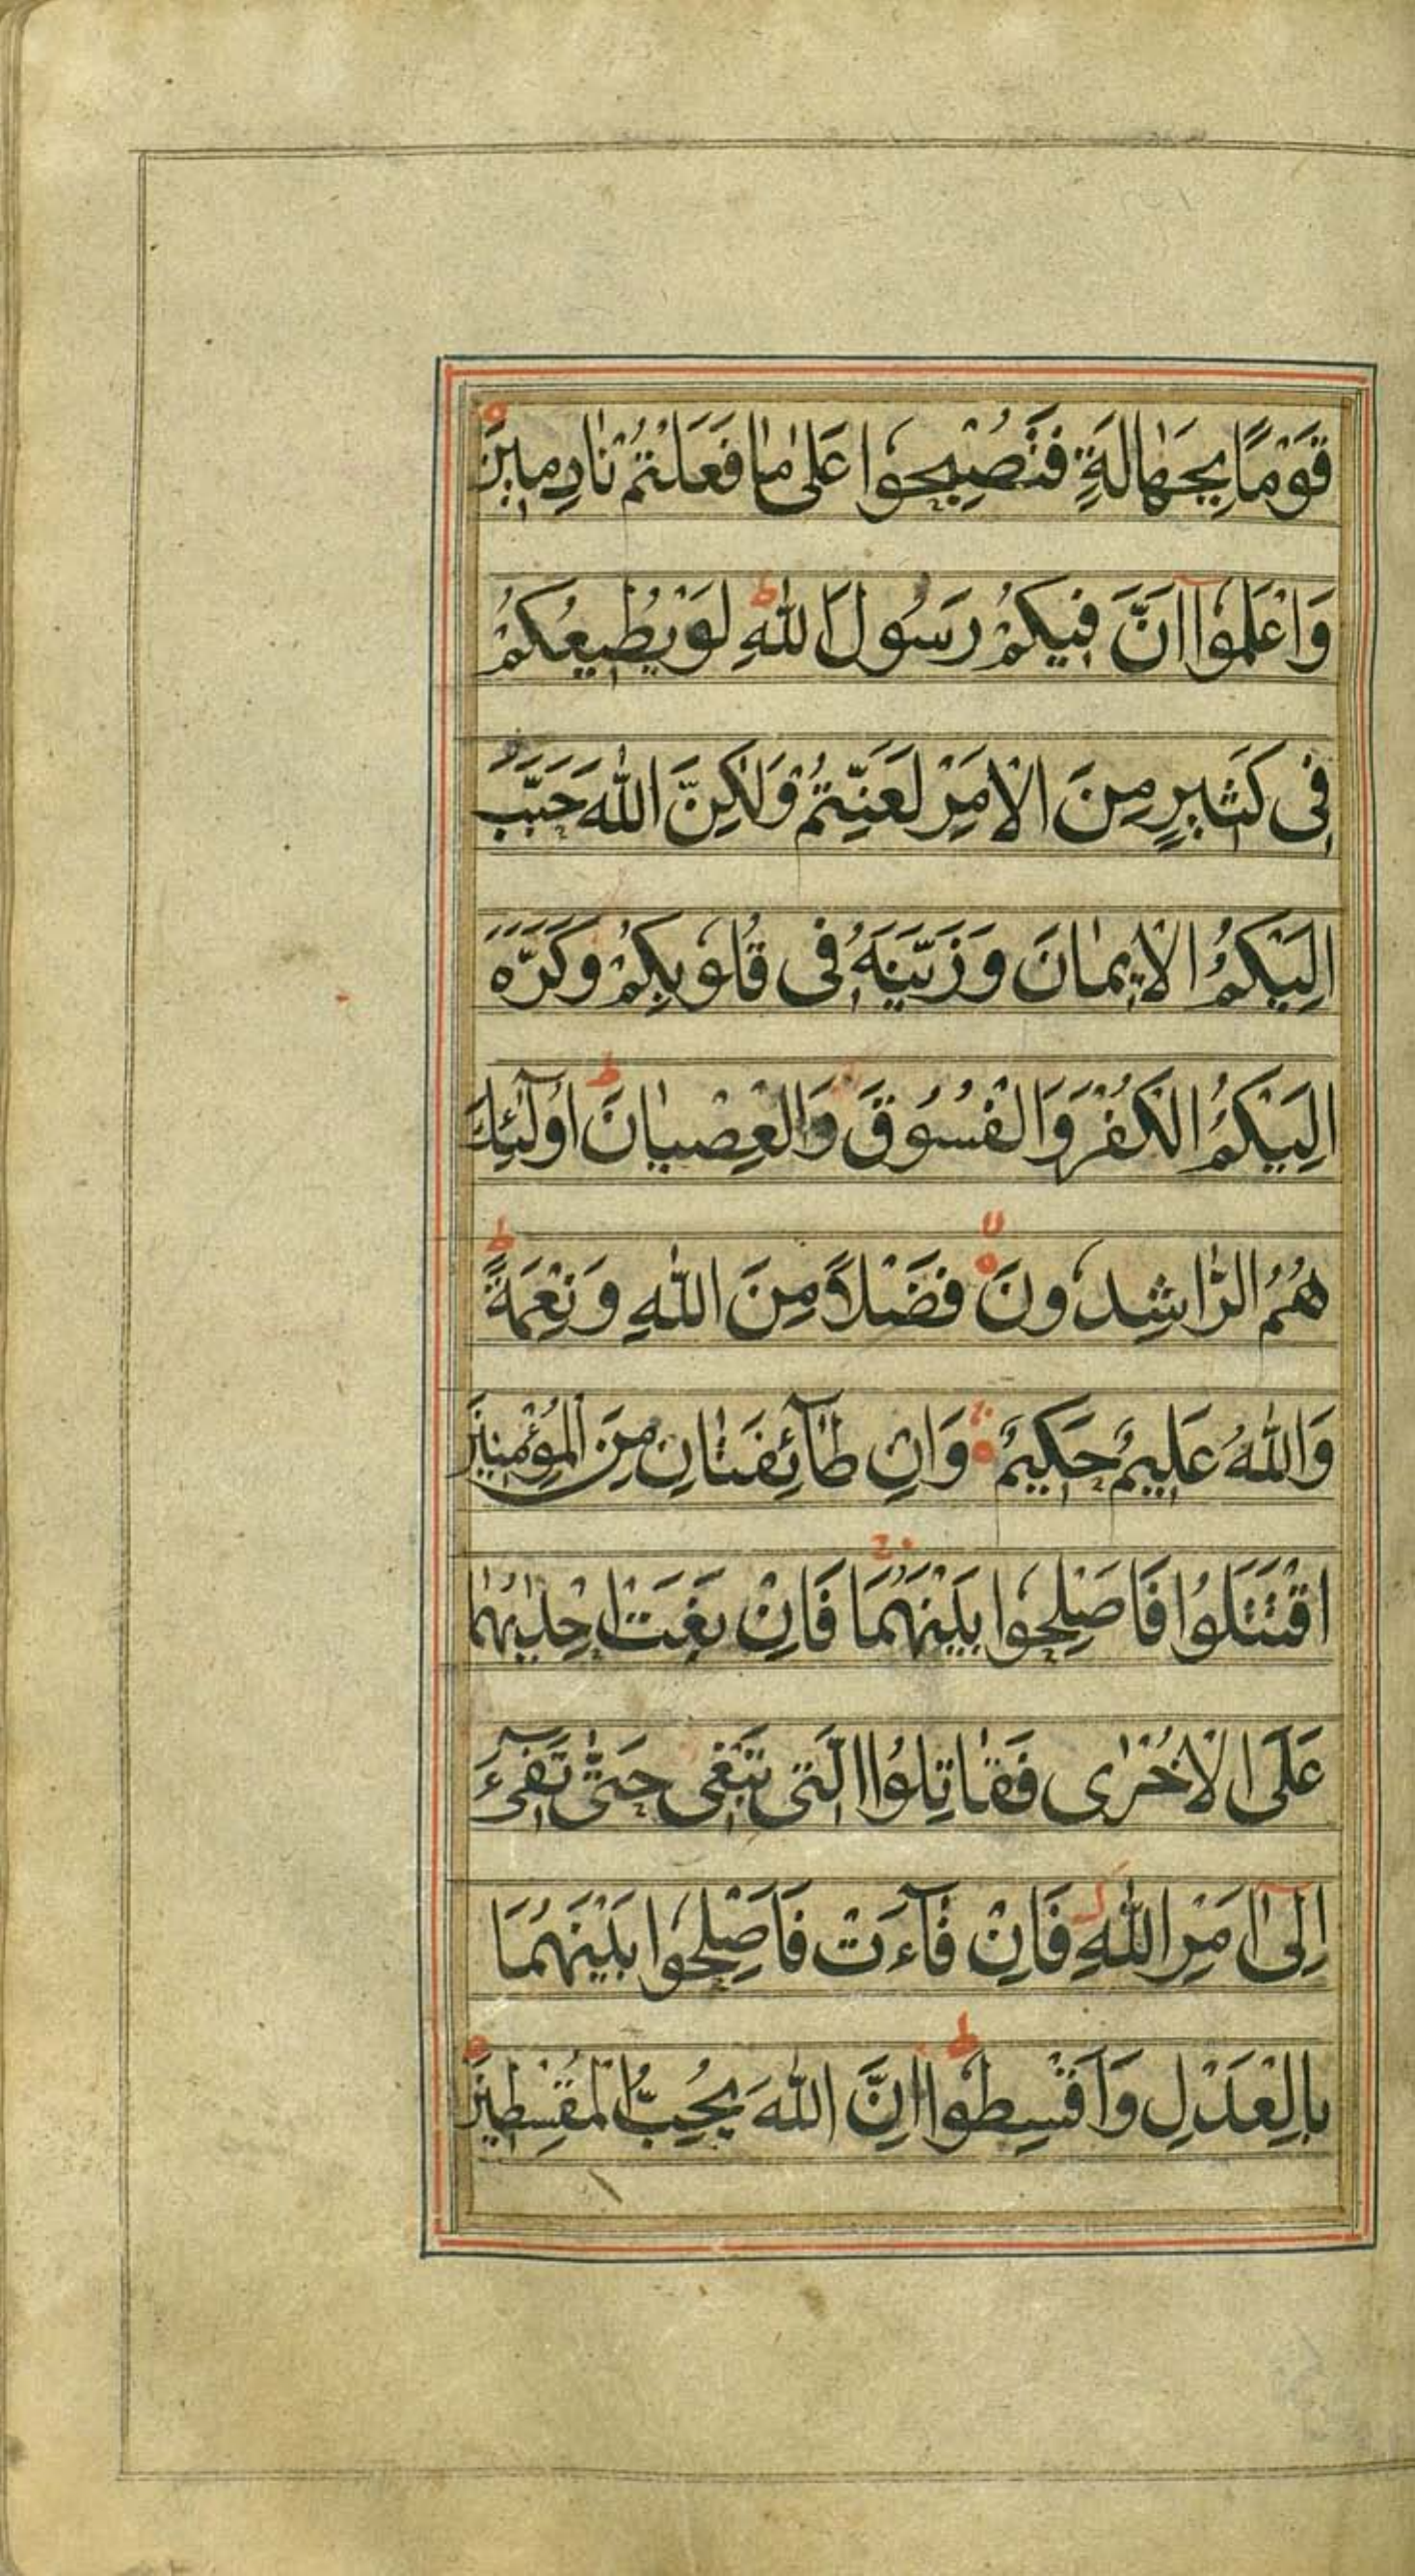 قَوْمًا بِجَهَالَةٍ فَتُصْبِحُوا عَلٰى مَا فَعَلْتُمْ نَادِمِينَ
وَاعْلَمُوآ اَنَّ فِيكُمْ رَسُولَ اللّٰهِ ط لَوْ يُطِيعُكُمْ
فِى كَثِيرٍ مِنَ الْاَمْرِ لَعَنِتُّمْ وَلٰكِنَّ اللّٰهَ حَبَّبَ
اِلَيْكُمُ الْاِيمَانَ وَزَيَّنَهُ فِى قُلُوبِكُمْ وَكَرَّهَ
اِلَيْكُمُ الْكُفْرَ وَالْفُسُوقَ وَالْعِصْيَانَ ط اُولٰٓئِكَ
هُمُ الرَّاشِدُونَ فَضْلًا مِنَ اللّٰهِ وَنِعْمَةً ط
وَاللّٰهُ عَلِيمٌ حَكِيمٌ وَاِنْ طَآئِفَتَانِ مِنَ الْمُؤْمِنِينَ
اقْتَتَلُوا فَاَصْلِحُوا بَيْنَهُمَا ج فَاِنْ بَغَتْ اِحْدٰيهُمَا
عَلَى الْاُخْرٰى فَقَاتِلُوا الَّتِى تَبْغِى حَتّٰى تَفِىٓءَ
اِلٰٓى اَمْرِ اللّٰهِ فَاِنْ فَآءَتْ فَاَصْلِحُوا بَيْنَهُمَا
بِالْعَدْلِ وَاَقْسِطُوا ط اِنَّ اللّٰهَ يُحِبُّ الْمُقْسِطِينَ